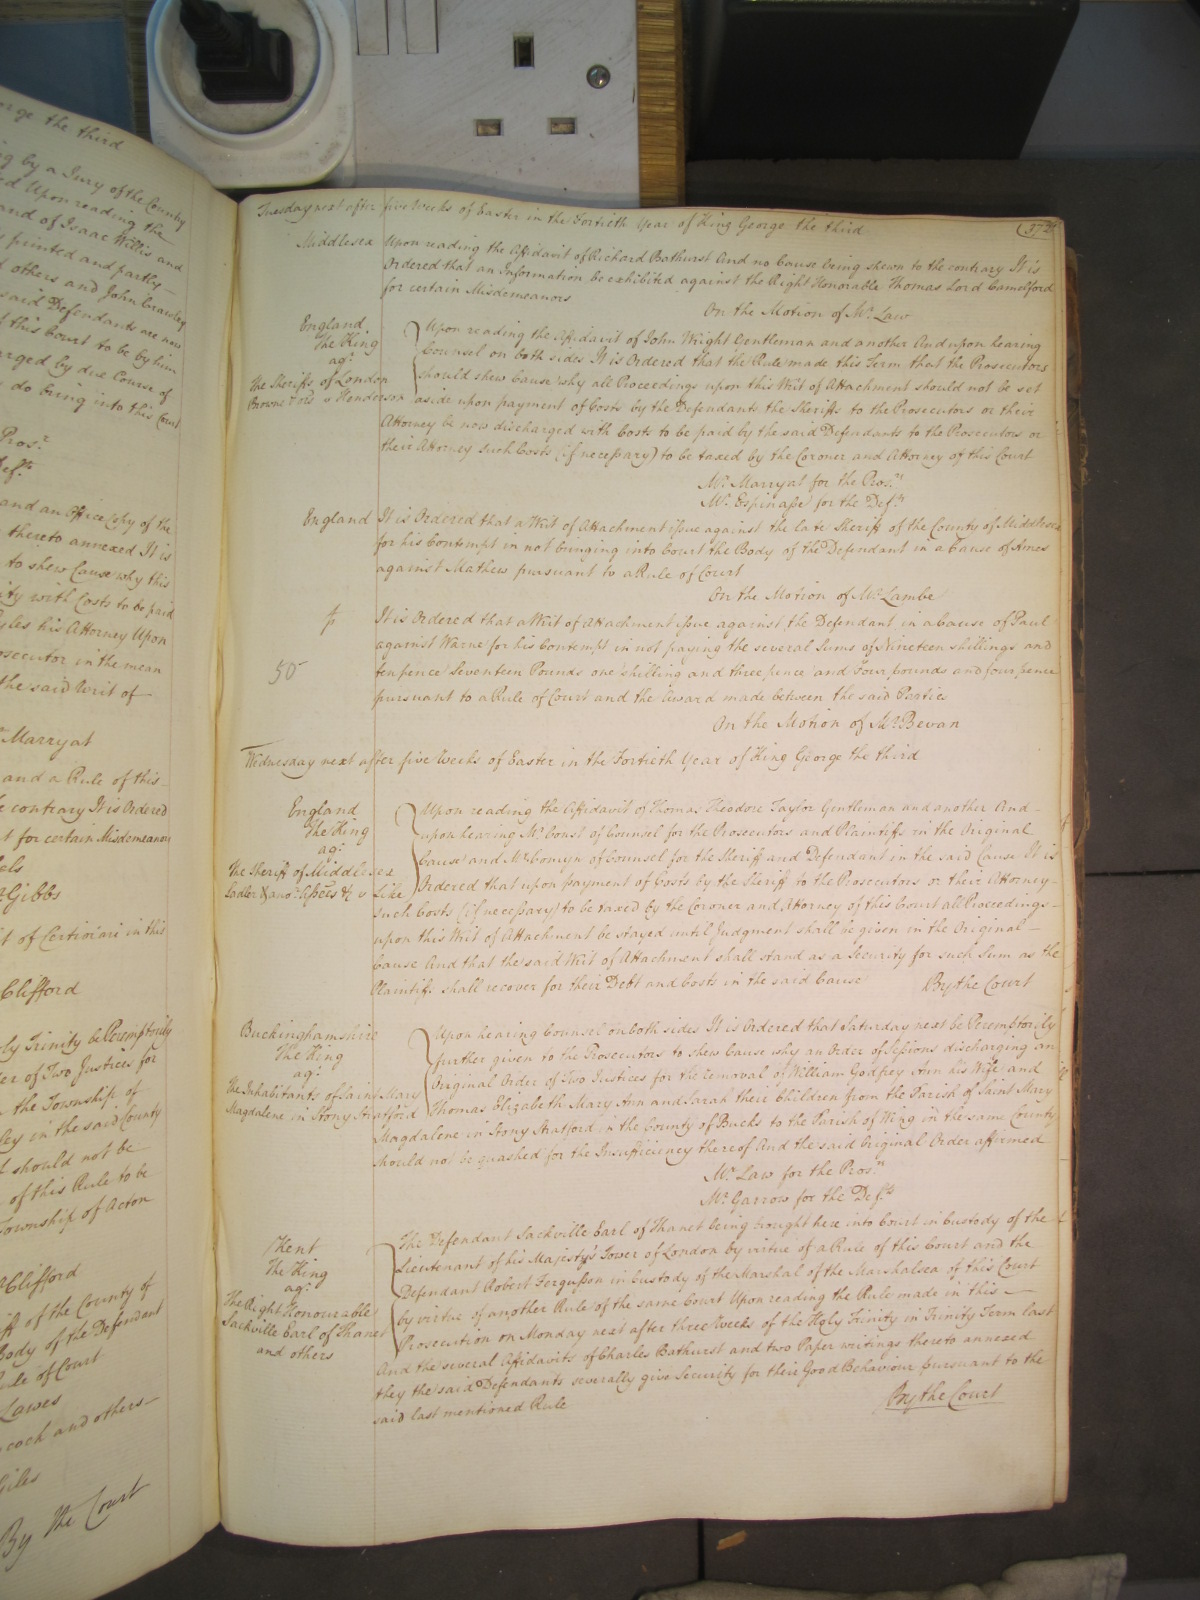 orge the third
ng by a Jury of the Country
ed Upon reading the
and of Isaac Willis and
s printed and partly
d others and John Crawley
said Defendants are now
f this Court to be by him
arged by due Course of
do bring into this Court
Pros.r
Def.ts
and an Office Copy of the
thereto annexed It is
to shew Cause why this
ity with Costs to be paid
yles his Attorney Upon
osecutor in the mean
the said Writ of
Marryat
and a Rule of this
e contrary It is Ordered
t for certain Misdemeanors
Gibbs
it of Certiorari in this
Clifford
oly Trinity be Peremptorily
er of Two Justices for
n the Township of
ley in the said County
d should not be
of this Rule to be
Township of Acton
Clifford
iff of the County of
Body of the Defendant
Rule of Court
Lawes
cock and others
Giles
By the Court
Tuesday next after five Weeks of Easter in the Fortieth Year of King George the third
Middlesex Upon reading the Affidavit of Richard Bathurst And no Cause being shewn to the contrary It is
Ordered that an Information be exhibited against the Right Honorable Thomas Lord Camelford
for certain Misdemeanors
On the Motion of Mr. Law
England
The King
ag.t
The Sheriffs of London
Browne v Henderson
Upon reading the Affidavit of John Wright Gentleman and another And upon hearing
Counsel on both sides It is Ordered that the Rule made this Term that the Prosecutors
should shew Cause why all Proceedings upon this Writ of Attachment should not be set
aside upon payment of Costs by the Defendants the Sheriffs to the Prosecutors or their
Attorney be now discharged with Costs to be paid by the said Defendants to the Prosecutors or
their Attorney such Costs (if necessary) to be taxed by the Coroner and Attorney of this Court
Mr. Marryat for the Pros.rs
Mr. Espinasse for the Def.ts
England It is Ordered that a Writ of Attachment issue against the late Sheriff of the County of Middlesex
for his Contempt in not bringing into Court the Body of the Defendant in a Cause of Ames
against Mathew pursuant to a Rule of Court
On the Motion of Mr. Lambe
It is Ordered that a Writ of Attachment issue against the Defendant in a Cause of Paul
against Warne for his Contempt in not paying the several Sums of Nineteen shillings and
50 tenpence Seventeen Pounds one shilling and three pence and Four pounds and four pence
pursuant to a Rule of Court and the Award made between the said Parties
On the Motion of Mr. Bevan
Wednesday next after five Weeks of Easter in the Fortieth Year of King George the third
England
The King
ag.t
The Sheriff of Middlesex
Sadler & ano.r v Like
Upon reading the Affidavit of Thomas Theodore Taylor Gentleman and another And
upon hearing Mr. Const of Counsel for the Prosecutors and Plaintiffs in the Original
Cause and Mr. Comyn of Counsel for the Sheriff and Defendant in the said Cause It is
Ordered that upon payment of Costs by the Sheriff to the Prosecutors or their Attorney
such Costs (if necessary) to be taxed by the Coroner and Attorney of this Court all Proceedings
upon this Writ of Attachment be stayed until Judgment shall be given in the Original
Cause And that the said Writ of Attachment shall stand as a Security for such Sum as the
Plaintiffs shall recover for their Debt and Costs in the said Cause By the Court
Buckinghamshire
The King
ag.t
The Inhabitants of Saint Mary
Magdalene in Stony Stratford
Upon hearing Counsel on both sides It is Ordered that Saturday next be Peremptorily
further given to the Prosecutors to shew Cause why an Order of Sessions discharging an
Original Order of Two Justices for the removal of William Godfrey Ann his Wife and
Thomas Elizabeth Mary Ann and Sarah their Children from the Parish of Saint Mary
Magdalene in Stony Stratford in the County of Bucks to the Parish of Wing in the same County
should not be quashed for the Insufficiency thereof And the said Original Order affirmed
Mr. Law for the Pros.rs
Mr. Garrow for the Def.ts
Kent
The King
ag.t
The Right Honourable
Sackville Earl of Thanet
and others
The Defendant Sackville Earl of Thanet being brought here into Court in Custody of the
Lieutenant of his Majesty's Tower of London by virtue of a Rule of this Court and the
Defendant Robert Fergusson in Custody of the Marshal of the Marshalsea of this Court
by virtue of another Rule of the same Court Upon reading the Rule made in this
Prosecution on Monday next after three Weeks of the Holy Trinity in Trinity Term last
And the several Affidavits of Charles Bathurst and two Paper writings thereto annexed
they the said Defendants severally give Security for their Good Behaviour pursuant to the
said last mentioned Rule
By the Court